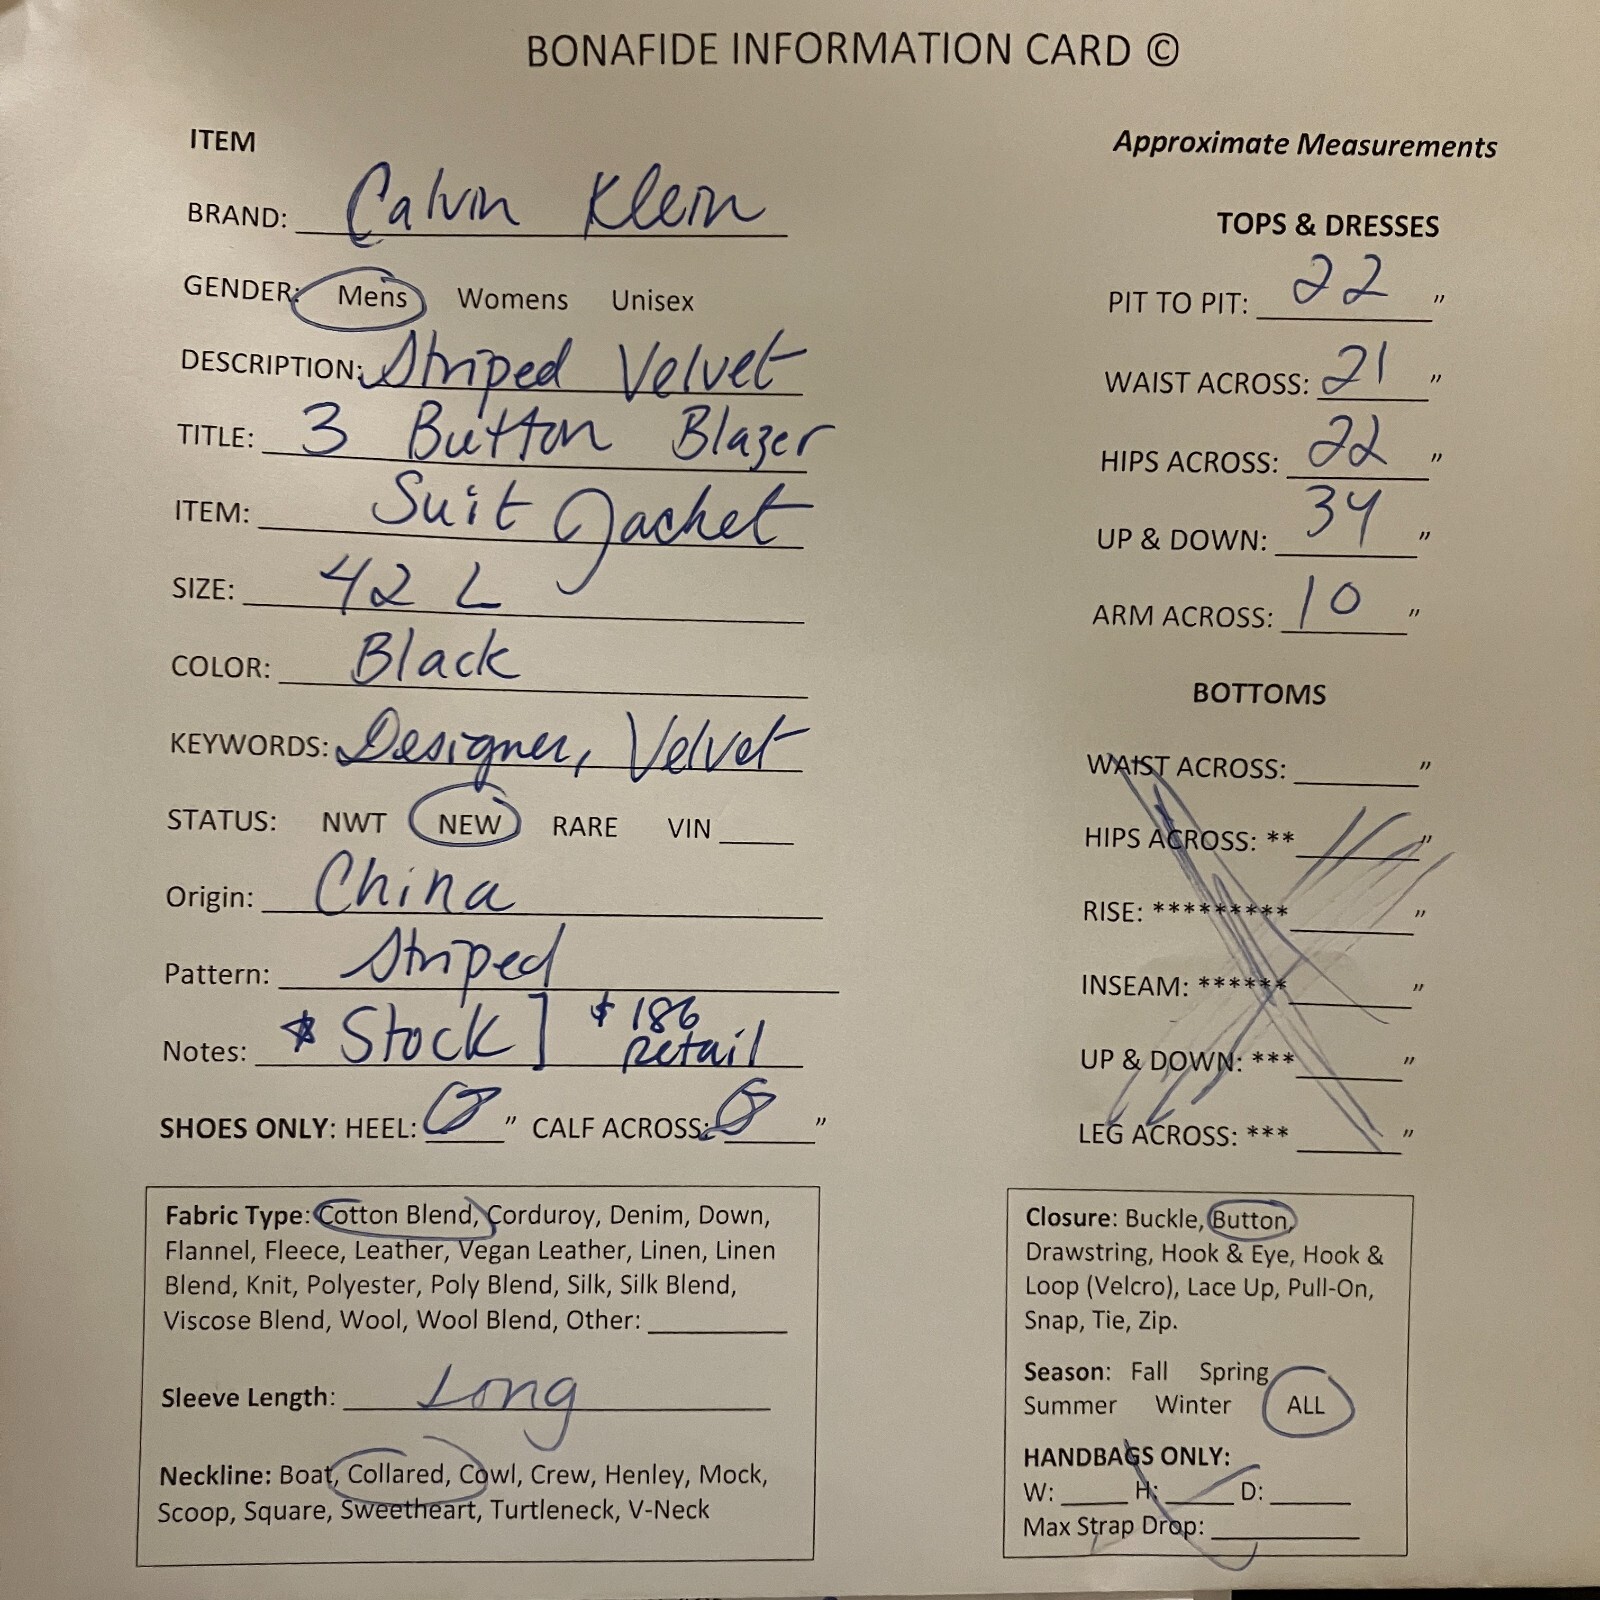 BONAFIDE INFORMATION CARD ©
ITEM
BRAND: Calvin Klein
GENDER: Mens Womens Unisex
DESCRIPTION: Striped Velvet
TITLE: 3 Button Blazer
ITEM: Suit Jacket
SIZE: 42 L
COLOR: Black
KEYWORDS: Designer, Velvet
STATUS: NWT NEW RARE VIN ____
Origin: China
Pattern: Striped
Notes: * Stock ] $ 186
Retail
SHOES ONLY: HEEL: ____ " CALF ACROSS: ____ "
Fabric Type: Cotton Blend, Corduroy, Denim, Down,
Flannel, Fleece, Leather, Vegan Leather, Linen, Linen
Blend, Knit, Polyester, Poly Blend, Silk, Silk Blend,
Viscose Blend, Wool, Wool Blend, Other: ____
Sleeve Length: Long
Neckline: Boat, Collared, Cowl, Crew, Henley, Mock,
Scoop, Square, Sweetheart, Turtleneck, V-Neck
Approximate Measurements
TOPS & DRESSES
PIT TO PIT: 22 "
WAIST ACROSS: 21 "
HIPS ACROSS: 22 "
UP & DOWN: 34 "
ARM ACROSS: 10 "
BOTTOMS
WAIST ACROSS: ____ "
HIPS ACROSS: ** ____ "
RISE: ********* ____ "
INSEAM: ****** ____ "
UP & DOWN: *** ____ "
LEG ACROSS: *** ____ "
Closure: Buckle, Button,
Drawstring, Hook & Eye, Hook &
Loop (Velcro), Lace Up, Pull-On,
Snap, Tie, Zip.
Season: Fall Spring
Summer Winter ALL
HANDBAGS ONLY:
W: ____ H: ____ D: ____
Max Strap Drop: ____